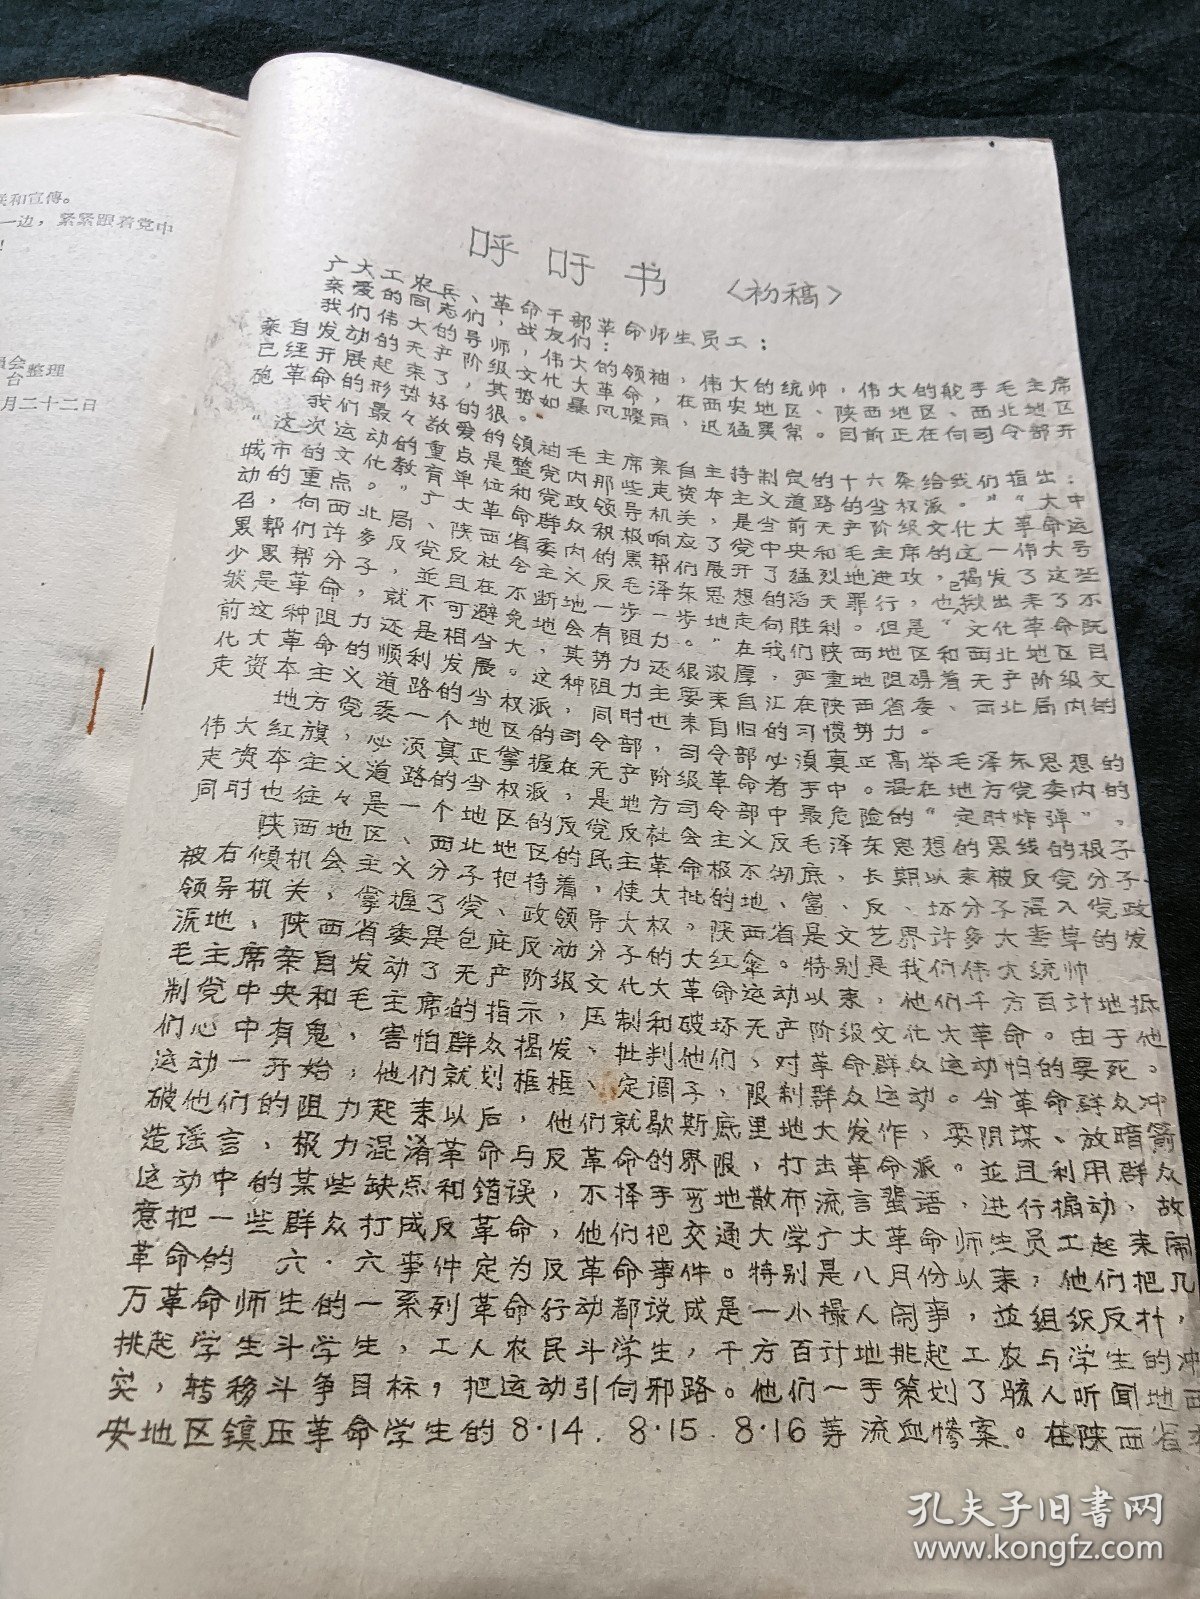 联和宣传。
一边，紧紧跟着党中
！
员会
台整理
月二十二日
呼吁书 〈初稿〉
广大工农兵、革命干部革命师生员工：
亲爱的同志们，战友们：
我们伟大的导师，伟大的领袖，伟大的统帅，伟大的舵手毛主席
亲自发动的无产阶级文化大革命，在西安地区、陕西地区、西北地区
已经开展起来了，其势如暴风骤雨，迅猛异常。目前正在向司令部开
砲革命的形势好的很。
我们最々敬爱的领袖毛主席亲自主持制定的十六条给我们指出：
“这次运动的重点是整党内那些走资本主义道路的当权派。”“大中
城市的文化教育单位和党政领导机关，是当前无产阶级文化大革命运
动的重点。”广大革命群众积极响应了党中央和毛主席的这一伟大号
召，向西北局、陕西省委内的黑帮们展开了猛烈地进攻，揭发了这些
黑帮们许多反党反社会主义反毛泽东思想的滔天罪行，也已揪出来了不
少黑帮分子，並且在不断地一步一步地走向胜利。但是“文化革命既
然是革命，就不可避免地会有阻力。”在我们陕西地区和西北地区目
前这种阻力还是相当大，其势力还很浓厚，严重地阻碍着无产阶级文
化大革命的顺利发展。这种阻力主要来自汇在陕西省委、西北局内的
走资本主义道路的当权派，同时也来自旧的习惯势力。
地方党委一个地区的司令部，司令部必须真正高举毛泽东思想的
伟大红旗，必须真正掌握在无产阶级革命者手中。混在地方党委内的
走资本主义道路的当权派，是地方司令部中最危险的“定时炸弹”，
同时也往々是一个地区的反党反社会主义反毛泽东思想的黑线的根子
陕西地区、西北地区的民主革命极不彻底，长期以来被反党分子、
被右倾机会主义分子把持着，使大批的地、富、反、坏分子混入党政
领导机关，掌握了党、政领导大权。陕西省是文艺界许多大毒草的发
源地，陕西省委是包庇反动分子的大红伞。特别是我们伟大统帅
毛主席亲自发动了无产阶级文化大革命运动以来，他们千方百计地抵
制党中央和毛主席的指示，压制和破坏无产阶级文化大革命。由于他
们心中有鬼，害怕群众揭发、批判他们，对革命群众运动怕的要死。
运动一开始，他们就划框框、定调子，限制群众运动。当革命群众冲
破他们的阻力起来以后，他们就歇斯底里地大发作，耍阴谋、放暗箭
造谣言，极力混淆革命与反革命的界限，打击革命派。並且利用群众
运动中的某些缺点和错误，不择手段地散布流言蜚语，进行搧动，故
意把一些群众打成反革命，他们把交通大学广大革命师生员工起来闹
革命的 六·六事件定为反革命事件。特别是八月份以来，他们把几
万革命师生的一系列革命行动都说成是一小撮人闹事，並组织反扑，
挑起学生斗学生，工人农民斗学生，千方百计地挑起工农与学生的冲
实，转移斗争目标，把运动引向邪路。他们一手策划了骇人听闻地西
安地区镇压革命学生的8·14．8·15．8·16等流血惨案。在陕西省委
孔夫子旧书网
www.kongfz.com